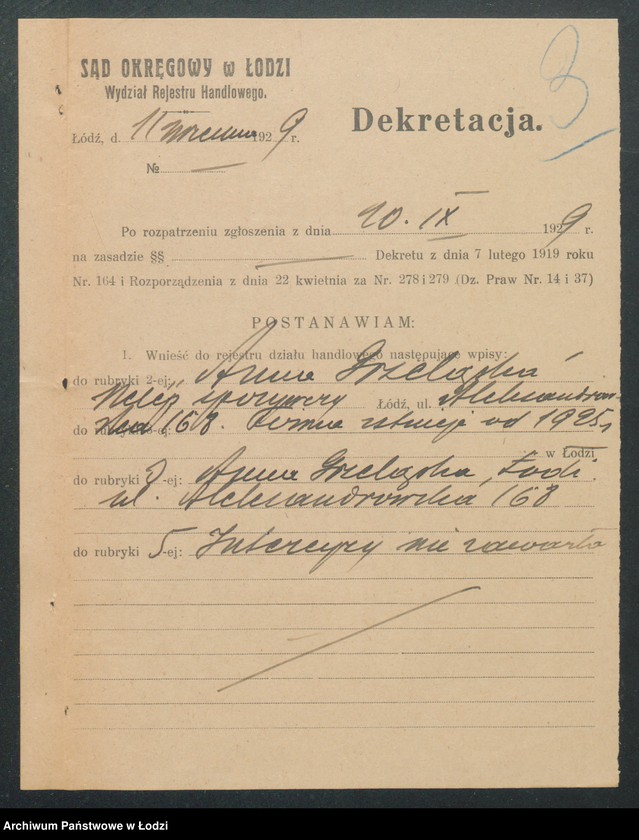 SĄD OKRĘGOWY w ŁODZI
Wydział Rejestru Handlowego.
3
Dekretacja.
Łódź, d. 11 września 1929 r.
№ —
Po rozpatrzeniu zgłoszenia z dnia 10. IX 1929 r.
na zasadzie §§ — Dekretu z dnia 7 lutego 1919 roku
Nr. 164 i Rozporządzenia z dnia 22 kwietnia za Nr. 278 i 279 (Dz. Praw Nr. 14 i 37)
POSTANAWIAM:
1. Wnieść do rejestru działu handlowego następujące wpisy:
do rubryki 2-ej: Anna Grzelązka
spożywczy Łódź, ul. Aleksandrow-
ska 168. Firma istnieje od 1925 r.
do rubryki -ej:
w Łodzi
do rubryki 3-ej: Anna Grzelązka, Łódź.
ul. Aleksandrowska 168
do rubryki 5-ej: Intercyzy nie zawarła
Archiwum Państwowe w Łodzi